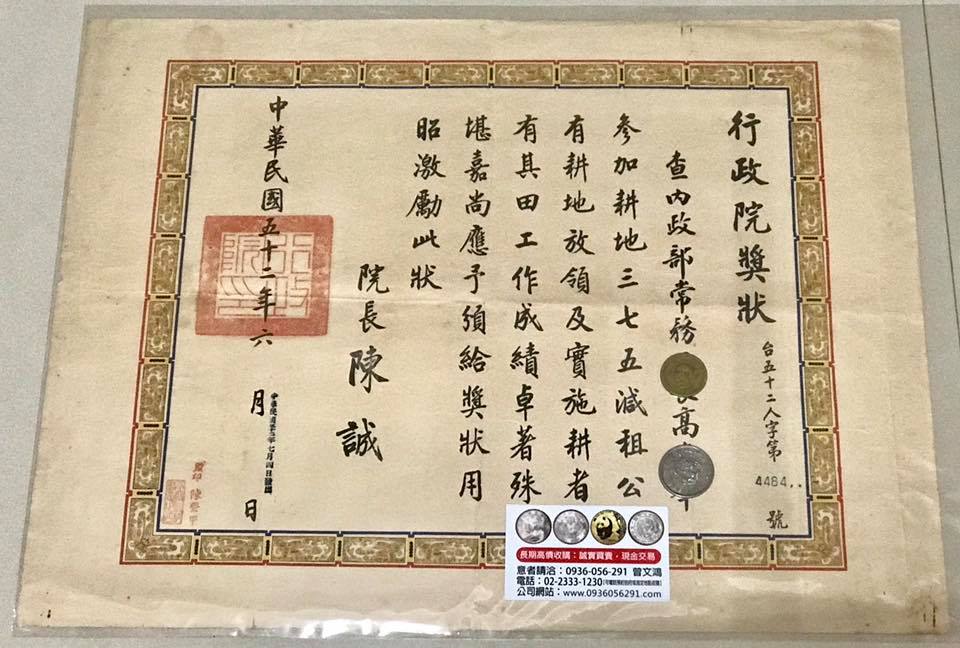 行政院獎狀
台五十二人字第
4484..
號
查內政部常務
高
參加耕地三七五減租公
有耕地放領及實施耕者
有其田工作成績卓著殊
堪嘉尚應予頒給獎狀用
昭激勵此狀
院長 陳誠
中華民國五十二年六
月
日
行政院印
監印 陳
長期高價收購：誠實買賣，現金交易
意者請洽：0936-056-291 曾文鴻
電話：02-2333-1230
公司網站：www.0936056291.com